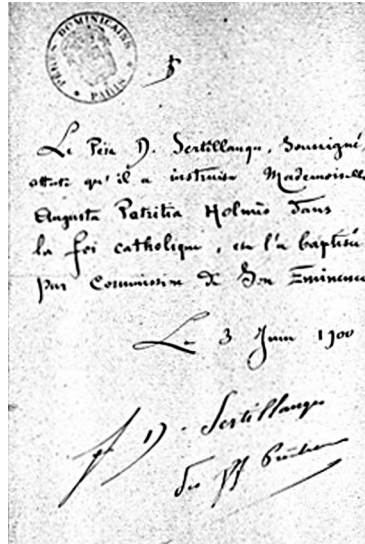 PÈRES DOMINICAINS
PARIS
Le Père D. Sertillanges, soussigné,
atteste qu'il a instruire Mademoiselle
Augusta Patritia Holmès dans
la foi catholique, et l'a baptisé
par Commission de Son Éminence
Le 3 Juin 1900
fr D. Sertillanges
des ff Prêcheurs